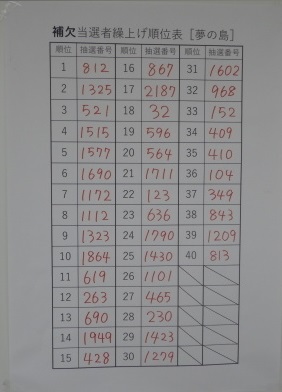 補欠当選者繰上げ順位表［夢の島］
順位 抽選番号 順位 抽選番号 順位 抽選番号
1 812 16 867 31 1602
2 1325 17 2187 32 968
3 521 18 32 33 152
4 1515 19 596 34 409
5 1577 20 564 35 410
6 1690 21 1711 36 104
7 1172 22 123 37 349
8 1112 23 636 38 843
9 1323 24 1790 39 1209
10 1864 25 1430 40 813
11 619 26 1101
12 263 27 465
13 690 28 230
14 1949 29 1423
15 428 30 1279